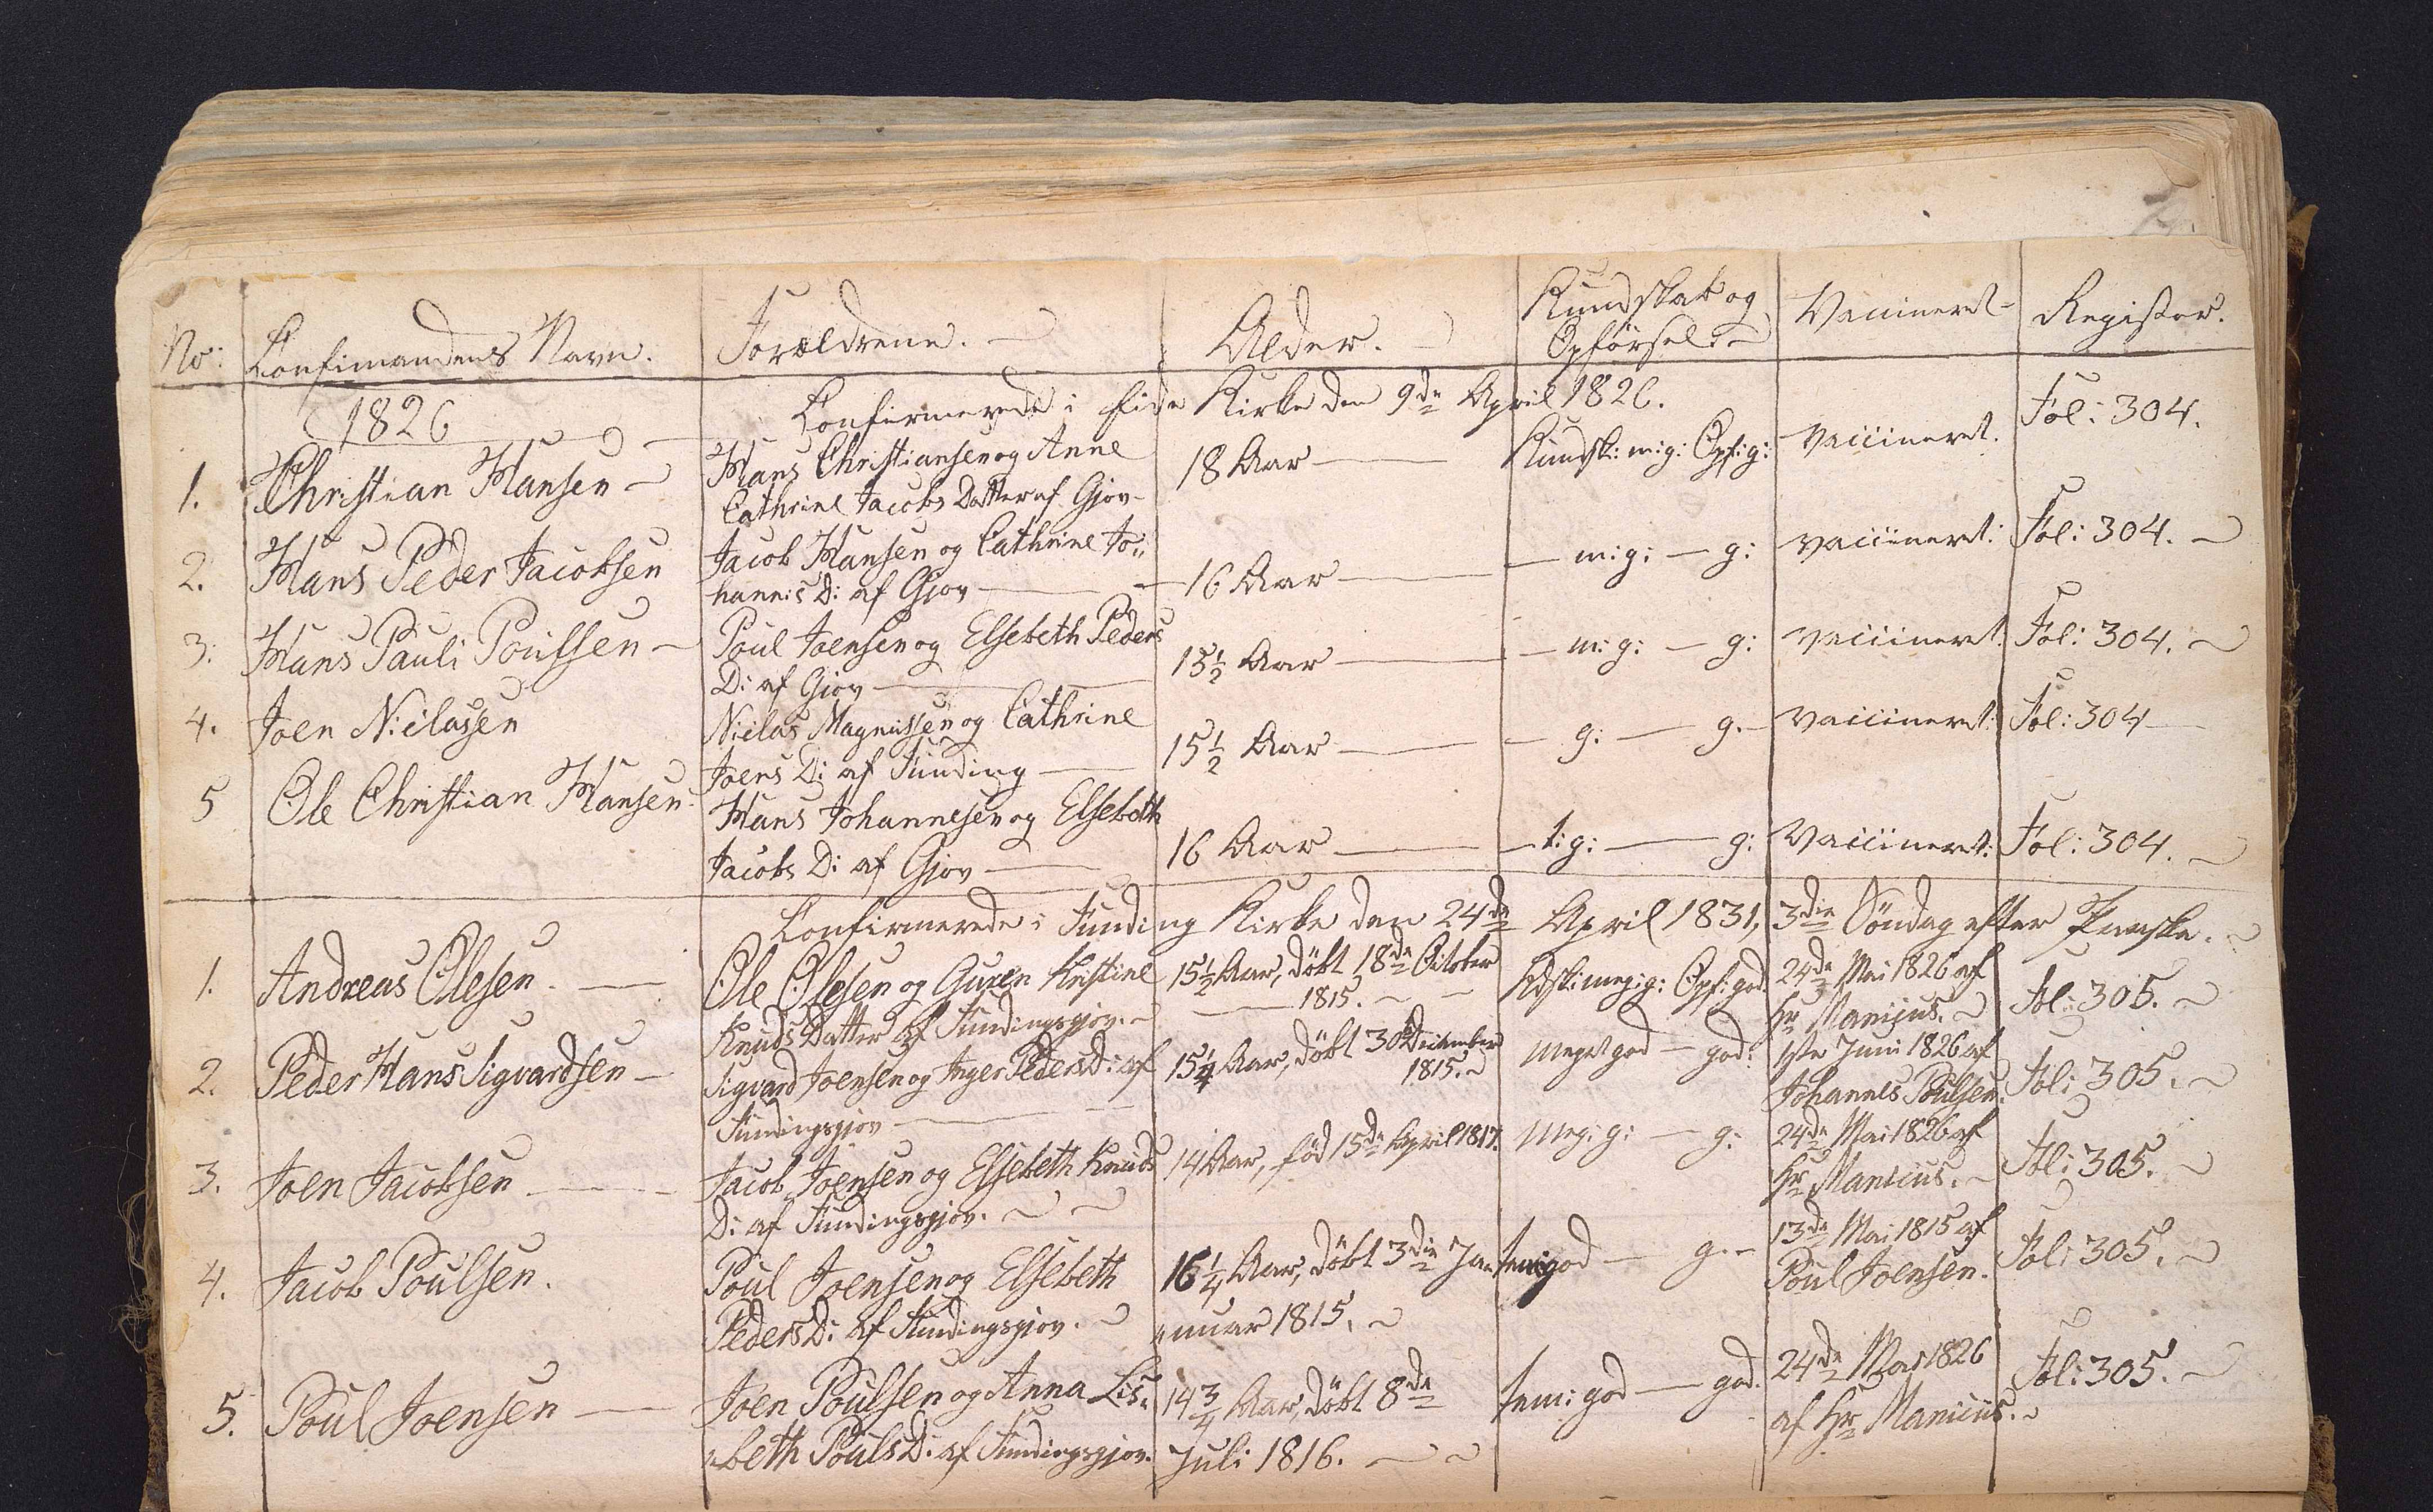 No: Confimandens Navn. Forældrene. Alder. Kundskab og Opførsel. Vaccineret Register.
1826 Confirmerede i Eide Kirke den 9de April 1826.
1. Christian Hansen Hans Christiansen og Anne 18 Aar Kundsk: m: g: Opf: g: vaccineret. Fol: 304.
Cathrine Jacobs Datter af Gjov
2. Hans Peder Jacobsen Jacob Hansen og Cathrine Jo: 16 Aar m: g: g: vaccineret: Fol: 304.
hannis D: af Gjov
3. Hans Pauli Poulsen Poul Joensen og Elsebeth Peders 15½ Aar m: g: g: vaccineret. Fol: 304.
D: af Gjov
4. Joen Nielassen Nielas Magnussen og Cathrine 15½ Aar g: g. vaccineret: Fol: 304
Joens D: af Funding
5 Ole Christian Hansen Hans Johannesen og Elsebeth 16 Aar t: g: g: vaccineret: Fol: 304.
Jacobs D: af Gjov
Confirmerede i Funding Kirke den 24de April 1831, 3die Söndag efter Paaske.
1. Andreas Olesen. Ole Olesen og Guren Kristine 15½ Aar, döbt 18de October Kdsk: meg: g: Opf: god. 24de Mai 1826 af Fol: 305.
Knuds Datter af Fundingsgjov. 1815. Hr Manicus.
2. Peder Hans Sigvardsen Sigvard Joensen og Inger Peders D: af 15¼ Aar, döbt 30de December meget god god: 1ste Juni 1826 af Fol: 305.
Fundingsgjov 1815. Johannes Poulsen.
3. Joen Jacobsen Jacob Joensen og Elsebeth Knuds 14 Aar, fød 15de April 1817. meg: g: g: 24de Mai 1826 af Fol: 305.
D: af Fundingsgjov. Hr Manicus.
4. Jacob Poulsen. Poul Joensen og Elsebeth 16¼ Aar, döbt 3die Ja= god g. 13de Mai 1815 af Fol: 305.
Peders D: af Fundingsgjov. "nuar 1815. Poul Joensen.
5. Poul Joensen Joen Poulsen og Anna Lis" 14¾ Aar, döbt 8de tem: god god. 24de Mai 1826 Fol: 305.
"beth Pouls D: af Fundingsgjov. Juli 1816. af Hr Manicus.